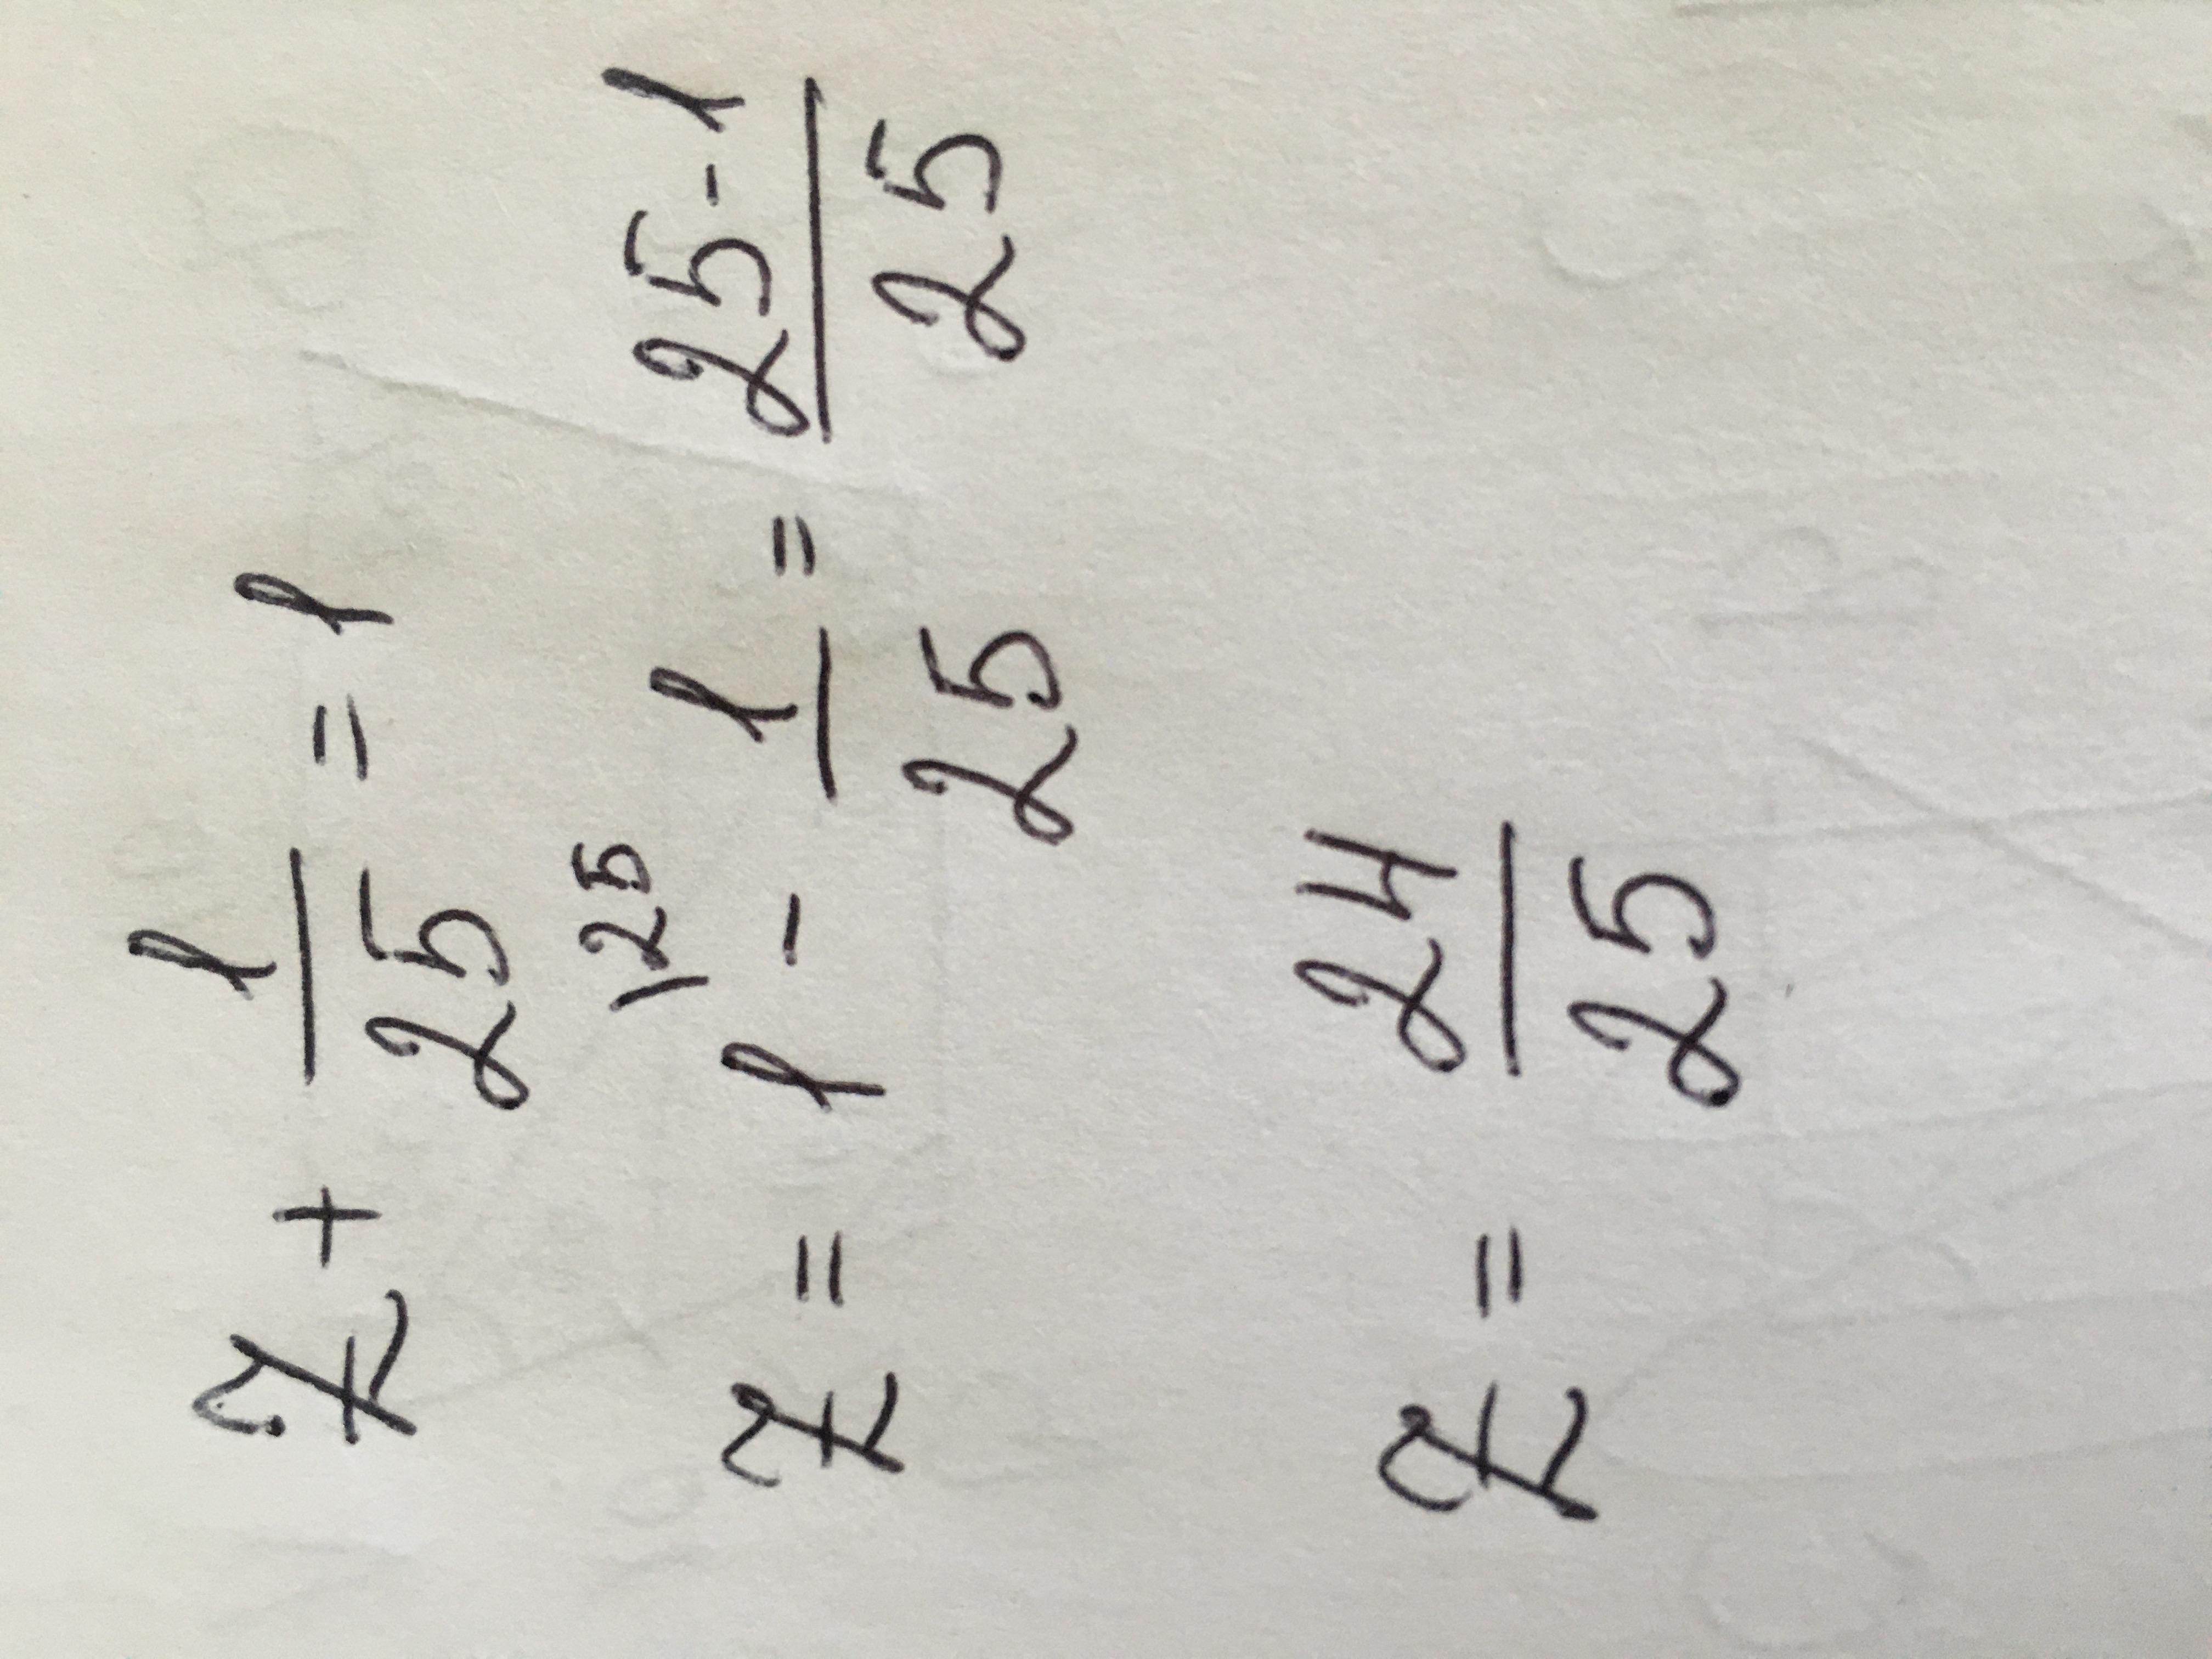 x + 1/25 = 1
125
x = 1 - 1/25 = 25-1/25
x = 24/25